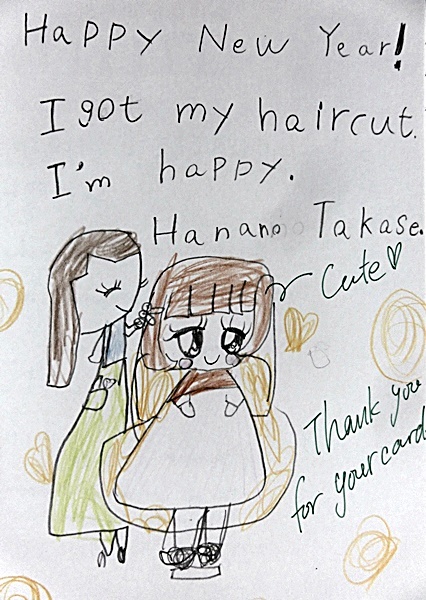 Happy New Year!
I got my haircut.
I'm happy.
Hanano Takase.
Cute♡
Thank you
for your card